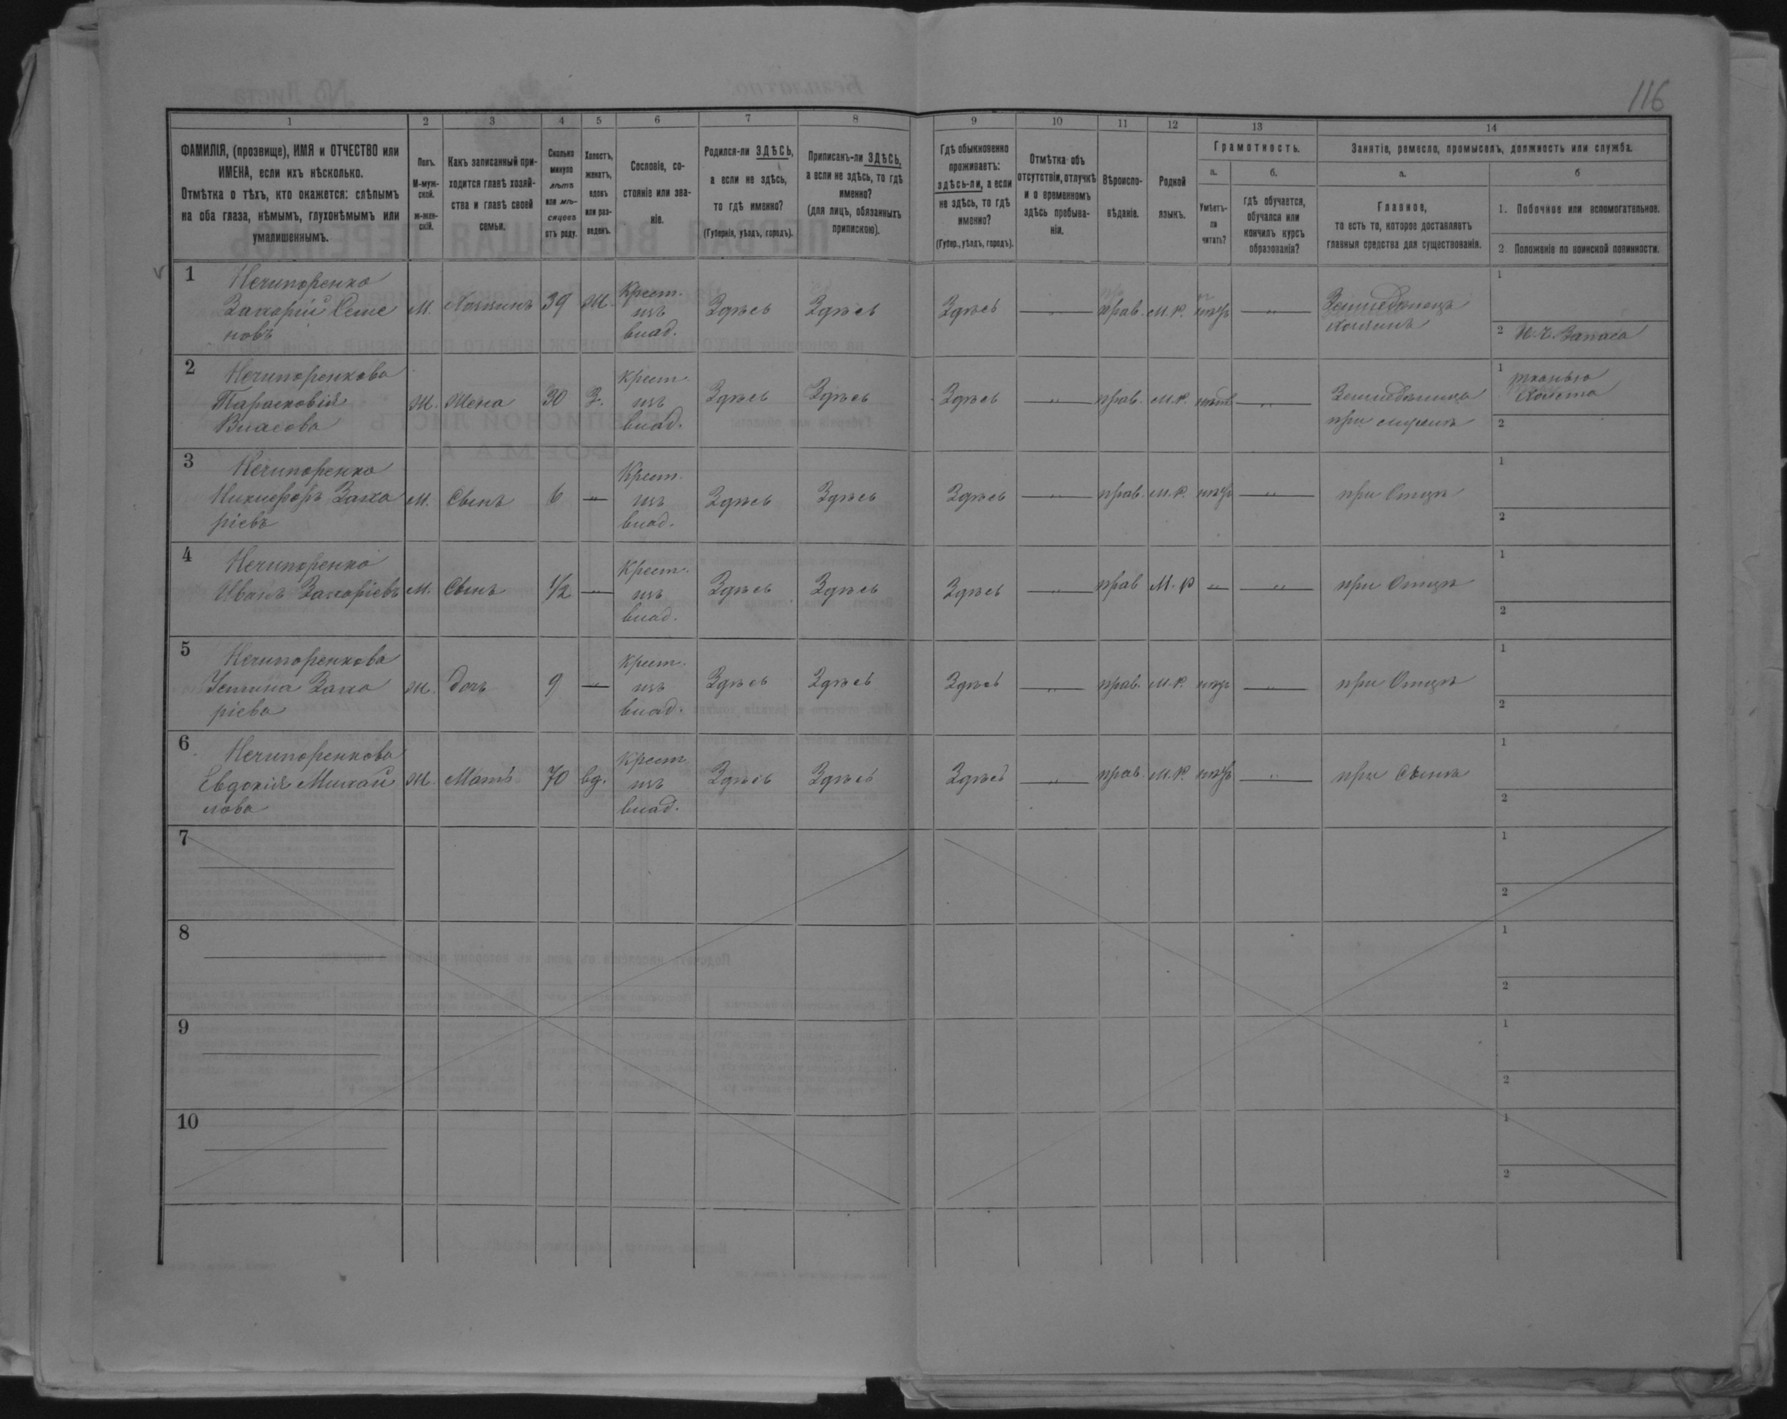 116
1 2 3 4 5 6 7 8 9 10 11 12 13 14
ФАМИЛІЯ, (прозвище), ИМЯ и ОТЧЕСТВО или
ИМЕНА, если ихъ нѣсколько.
Отмѣтка о тѣхъ, кто окажется: слѣпымъ
на оба глаза, нѣмымъ, глухонѣмымъ или
умалишеннымъ.
Полъ.
М-муж-
ской.
ж-жен-
скій.
Какъ записанный при-
ходится главѣ хозяй-
ства и главѣ своей
семьи.
Сколько
минуло
лѣтъ
или мѣ-
сяцевъ
отъ роду.
Холостъ,
женатъ,
вдовъ
или раз-
веденъ.
Сословіе, со-
стояніе или зва-
ніе.
Родился-ли ЗДѢСЬ,
а если не здѣсь,
то гдѣ именно?
(Губернія, уѣздъ, городъ).
Приписанъ-ли ЗДѢСЬ,
а если не здѣсь, то гдѣ
именно?
(для лицъ, обязанныхъ
припискою).
Гдѣ обыкновенно
проживаетъ:
здѣсь-ли, а если
не здѣсь, то гдѣ
именно?
(Губер., уѣздъ, городъ).
Отмѣтка объ
отсутствіи, отлучкѣ
и о временномъ
здѣсь пребыва-
ніи.
Вѣроиспо-
вѣданіе.
Родной
языкъ.
Грамотность.
а.
Умѣетъ-
ли
читать?
б.
гдѣ обучается,
обучался или
кончилъ курсъ
образованія?
Занятіе, ремесло, промыселъ, должность или служба.
а.
Главное,
то есть то, которое доставляетъ
главныя средства для существованія.
б
1. Побочное или вспомогательное.
2. Положеніе по воинской повинности.
1
Нечипоренко
Захарій Семе
новъ
М. Хозяинъ 39 Ж. Крест.
изъ
влад.
Здѣсь Здѣсь Здѣсь — прав. М.Р. нѣтъ —
Земледѣлецъ
хозяинъ
1
2 Н. Ч. Запаса
2
Нечипоренкова
Парасковія
Власова
Ж. Жена 30 З. Крест.
изъ
влад.
Здѣсь Здѣсь Здѣсь — прав. М.Р. —
Земледѣлица
при мужѣ
1
2
3
Нечипоренко
Никифоръ Заха
ріевъ
М. Сынъ 6 — Крест.
изъ
влад.
Здѣсь Здѣсь Здѣсь — прав. М.Р. нѣтъ —
при Отцѣ
1
2
4
Нечипоренко
Иванъ Захаріевъ
М. Сынъ 1/2 — Крест.
изъ
влад.
Здѣсь Здѣсь Здѣсь — прав. М.Р. — —
при Отцѣ
1
2
5
Нечипоренкова
Устина Заха
ріева
Ж. Дочь 9 — Крест.
изъ
влад.
Здѣсь Здѣсь Здѣсь — прав. М.Р. нѣтъ —
при Отцѣ
1
2
6
Нечипоренкова
Евдокія Михай
лова
Ж. Мать 70 вд. Крест.
изъ
влад.
Здѣсь Здѣсь Здѣсь — прав. М.Р. нѣтъ —
при Сынѣ
1
2
7
1
2
8
1
2
9
1
2
10
1
2